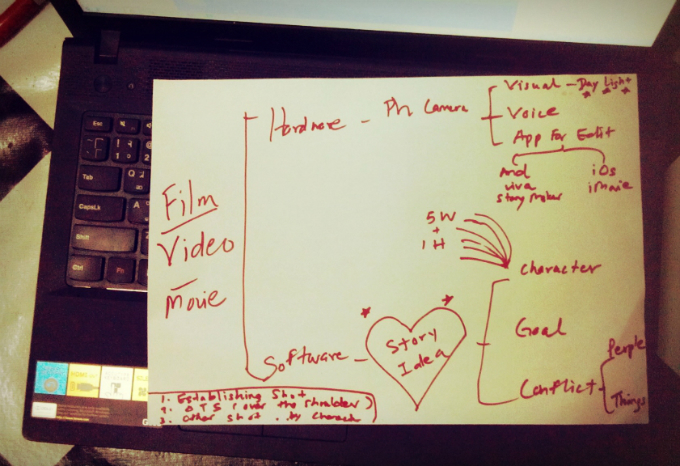 Film
Video
Movie
Hardware - Ph Camera
Visual - Day Light
Voice
App For Edit
And
viva
story maker
iOS
iMovie
5W
+
1H
Software - Story
Idea
Character
Goal
Conflict
People
Things
1. Establishing Shot
2. OTS (over the shoulder)
3. other shot . by charact
Esc
Tab
CapsLk
Shift
Ctrl
Fn